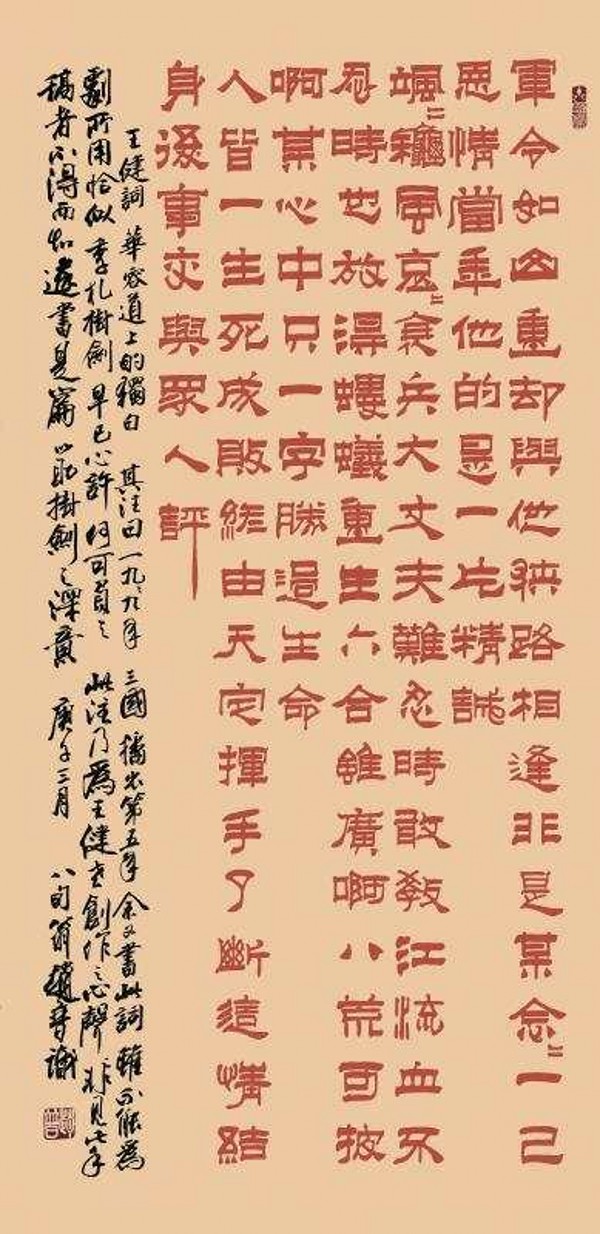 軍令如山重却與他狹路相逢非是某念〻一己
恩情當年他的是一片精誠
颯〻龝風哀〻衰兵大丈夫難忍時敢教江流血不
忍時也放得螻蟻重生六合雖廣啊八荒可披
啊某心中只一字勝過生命
人皆一生死成敗終由天定揮手了斷這情結
身後事交與眾人評
王健詞 華容道上的獨白 其注曰一九九〻年 三國播出第五年 余又書此詞 雖不能為
劇所用恰似季札樹劍早已心許何可負之 此注乃為王健老創作之心聲 非見此手
稿者不得而知遂書是篇以樹劍之深意 庚子三月 八旬翁趙守